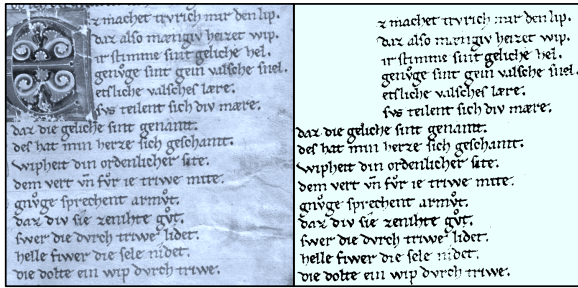 Ez machet trvrich mir den lip.
daz also mængiv heizet wip.
ir stimme sint geliche hel.
genvͦge sint gein valsche snel.
etsliche valsches lære.
svs teilent sich div mære.
daz die geliche sint genamt.
des hat min herze sich geschamt.
wipheit din ordenlicher site.
dem vert vn̄ fvͦr ie triwe mite.
gnvͦge sprechent armvͦt.
daz div sie zenihte gvͦt.
swer die dvrch triwe lidet.
helle fiwer die sele midet.
die dolte ein wip dvrch triwe.
z machet trvrich mir den lip.
daz also mængiv heizet wip.
ir stimme sint geliche hel.
genvͦge sint gein valsche snel.
etsliche valsches lære.
svs teilent sich div mære.
daz die geliche sint genamt.
des hat min herze sich geschamt.
wipheit din ordenlicher site.
dem vert vn̄ fvͦr ie triwe mite.
gnvͦge sprechent armvͦt.
daz div sie zenihte gvͦt.
swer die dvrch triwe lidet.
helle fiwer die sele midet.
die dolte ein wip dvrch triwe.